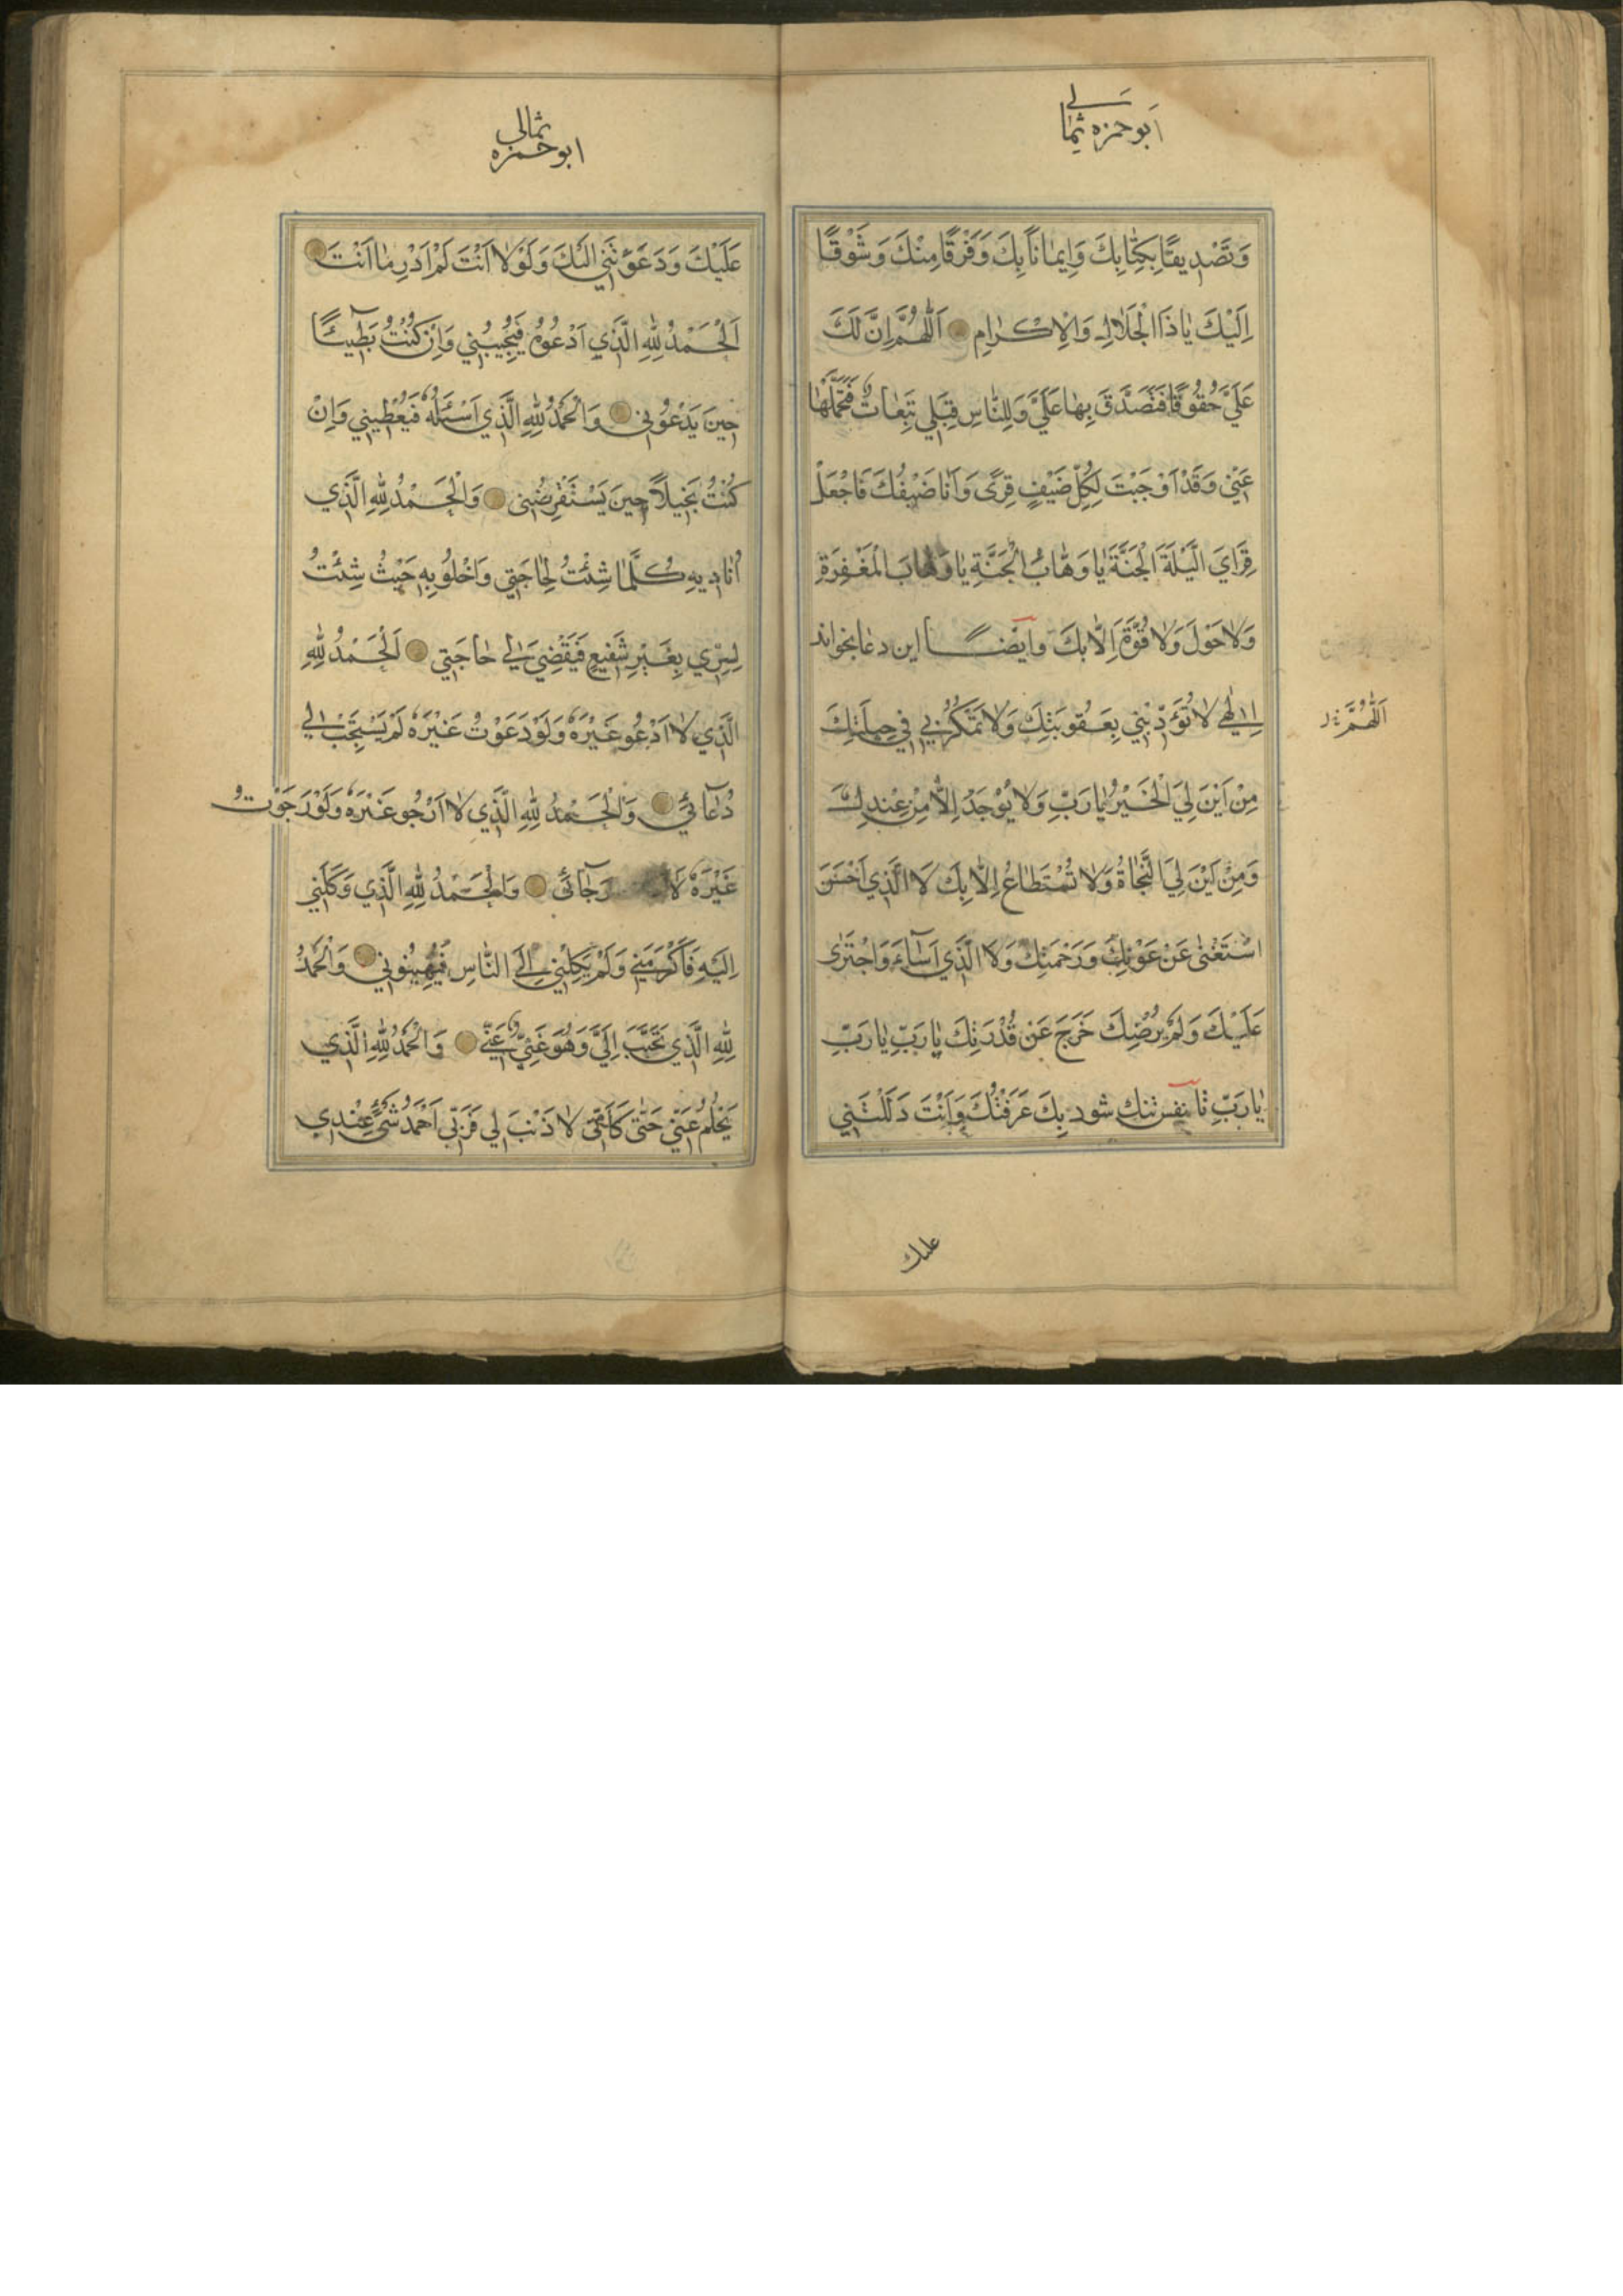 ابوحمزه ثمالی
وَتَصْدِيقًا بِكِتٰابِكَ وَاِيمٰانًا بِكَ وَفَرَقًا مِنْكَ وَشَوْقًا
اِلَيْكَ يٰا ذَا الْجَلٰالِ وَالْاِكْرٰامِ اَللّٰهُمَّ اِنَّ لَكَ
عَلَيَّ حُقُوقًا فَتَصَدَّقْ بِهٰا عَلَيَّ وَلِلنّٰاسِ قِبَلِي تَبِعٰاتٌ فَتَحَمَّلْهٰا
عَنِّي وَقَدْ اَوْجَبْتَ لِكُلِّ ضَيْفٍ قِرًى وَاَنَا ضَيْفُكَ فَاجْعَلْ
قِرٰايَ اللَّيْلَةَ الْجَنَّةَ يٰا وَهّٰابَ الْجَنَّةِ يٰا وَهّٰابَ الْمَغْفِرَةِ
وَلٰا حَوْلَ وَلٰا قُوَّةَ اِلّٰا بِكَ وايضًا اين دعا بخواند
اِلٰهِي لٰا تُؤَدِّبْنِي بِعُقُوبَتِكَ وَلٰا تَمْكُرْ بِي فِي حِيلَتِكَ
اَللّٰهُمَّ
مِنْ اَيْنَ لِيَ الْخَيْرُ يٰا رَبِّ وَلٰا يُوْجَدُ اِلّٰا مِنْ عِنْدِكَ
وَمِنْ اَيْنَ لِيَ النَّجٰاةُ وَلٰا تُسْتَطٰاعُ اِلّٰا بِكَ لَا الَّذِي اَحْسَنَ
اسْتَغْنٰى عَنْ عَوْنِكَ وَرَحْمَتِكَ وَلَا الَّذِي اَسٰآءَ وَاجْتَرٰى
عَلَيْكَ وَلَمْ يُرْضِكَ خَرَجَ عَنْ قُدْرَتِكَ يٰا رَبِّ يٰا رَبِّ
يٰا رَبِّ تا نفس تنك شود بِكَ عَرَفْتُكَ وَاَنْتَ دَلَلْتَنِي
عليك
ابوحمزه ثمالی
عَلَيْكَ وَدَعَوْتَنِي اِلَيْكَ وَلَوْلٰا اَنْتَ لَمْ اَدْرِ مٰا اَنْتَ
اَلْحَمْدُ لِلّٰهِ الَّذِي اَدْعُوهُ فَيُجِيبُنِي وَاِنْ كُنْتُ بَطِيٓئًا
حِينَ يَدْعُونِي وَالْحَمْدُ لِلّٰهِ الَّذِي اَسْئَلُهُ فَيُعْطِينِي وَاِنْ
كُنْتُ بَخِيلًا حِينَ يَسْتَقْرِضُنِي وَالْحَمْدُ لِلّٰهِ الَّذِي
اُنٰادِيهِ كُلَّمٰا شِئْتُ لِحٰاجَتِي وَاَخْلُو بِهِ حَيْثُ شِئْتُ
لِسِرِّي بِغَيْرِ شَفِيعٍ فَيَقْضِيَ لِي حٰاجَتِي اَلْحَمْدُ لِلّٰهِ
الَّذِي لٰا اَدْعُو غَيْرَهُ وَلَوْ دَعَوْتُ غَيْرَهُ لَمْ يَسْتَجِبْ لِي
دُعٰآئِي وَالْحَمْدُ لِلّٰهِ الَّذِي لٰا اَرْجُو غَيْرَهُ وَلَوْ رَجَوْتُ
غَيْرَهُ رَجٰائِي وَالْحَمْدُ لِلّٰهِ الَّذِي وَكَلَنِي
اِلَيْهِ فَاَكْرَمَنِي وَلَمْ يَكِلْنِي اِلَى النّٰاسِ فَيُهِينُونِي وَالْحَمْدُ
لِلّٰهِ الَّذِي تَحَبَّبَ اِلَيَّ وَهُوَ غَنِيٌّ عَنِّي وَالْحَمْدُ لِلّٰهِ الَّذِي
يَحْلُمُ عَنِّي حَتّٰى كَاَنِّي لٰا ذَنْبَ لِي فَرَبِّي اَحْمَدُ شَيْءٍ عِنْدِي